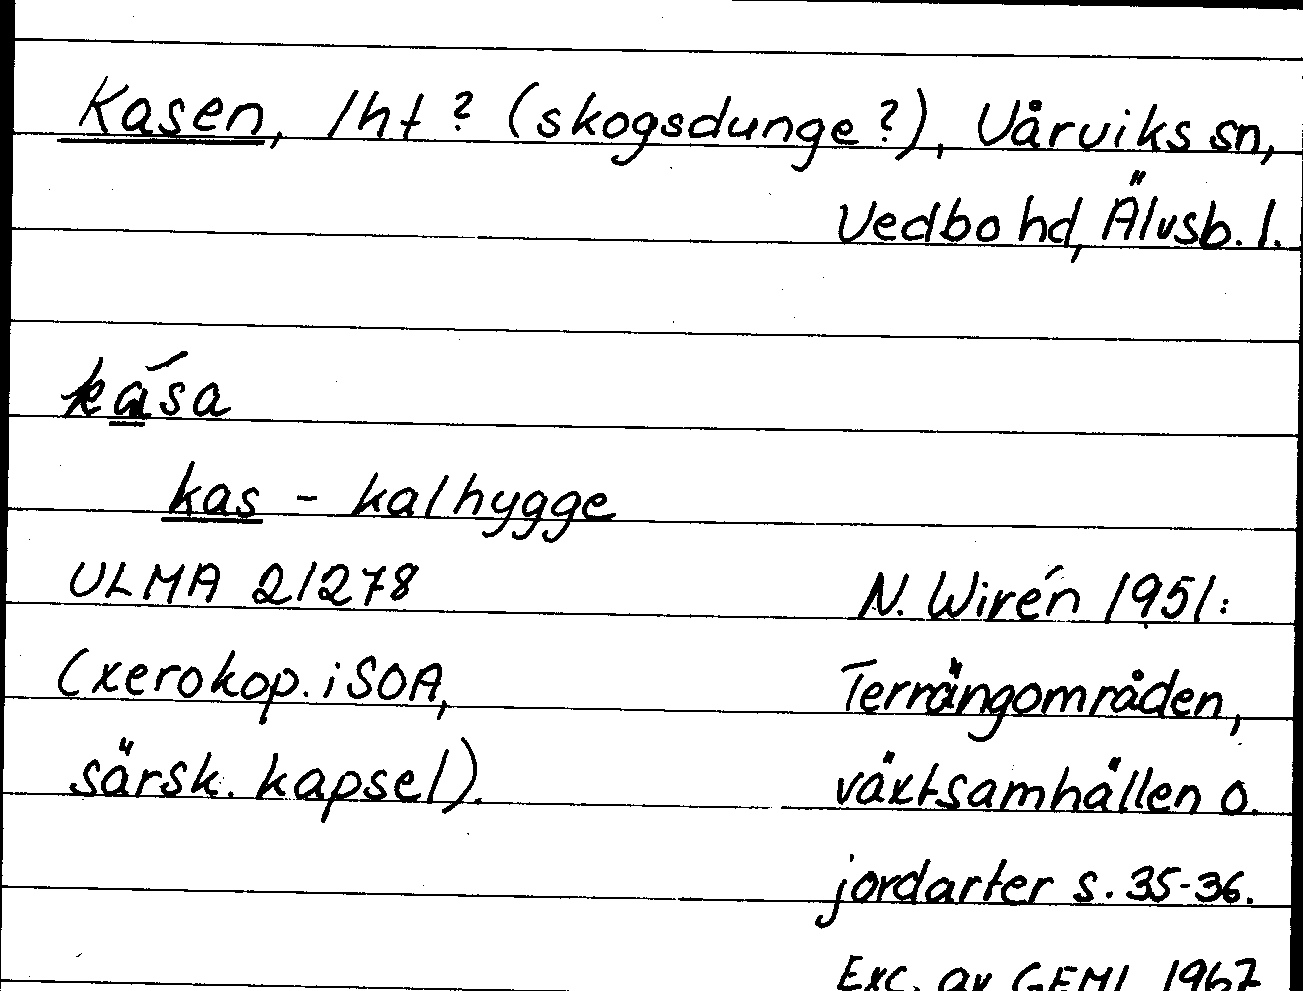 Kasen, lht? (skogsdunge?), Vårviks sn,
Vedbo hd, Älvsb. l.
kása
kas - kalhygge
ULMA 21278
N. Wirén 1951:
(xerokop. i SOA,
Terrängområden,
särsk. kapsel).
växtsamhällen o.
jordarter s. 35-36.
Exc. av GEML 1967